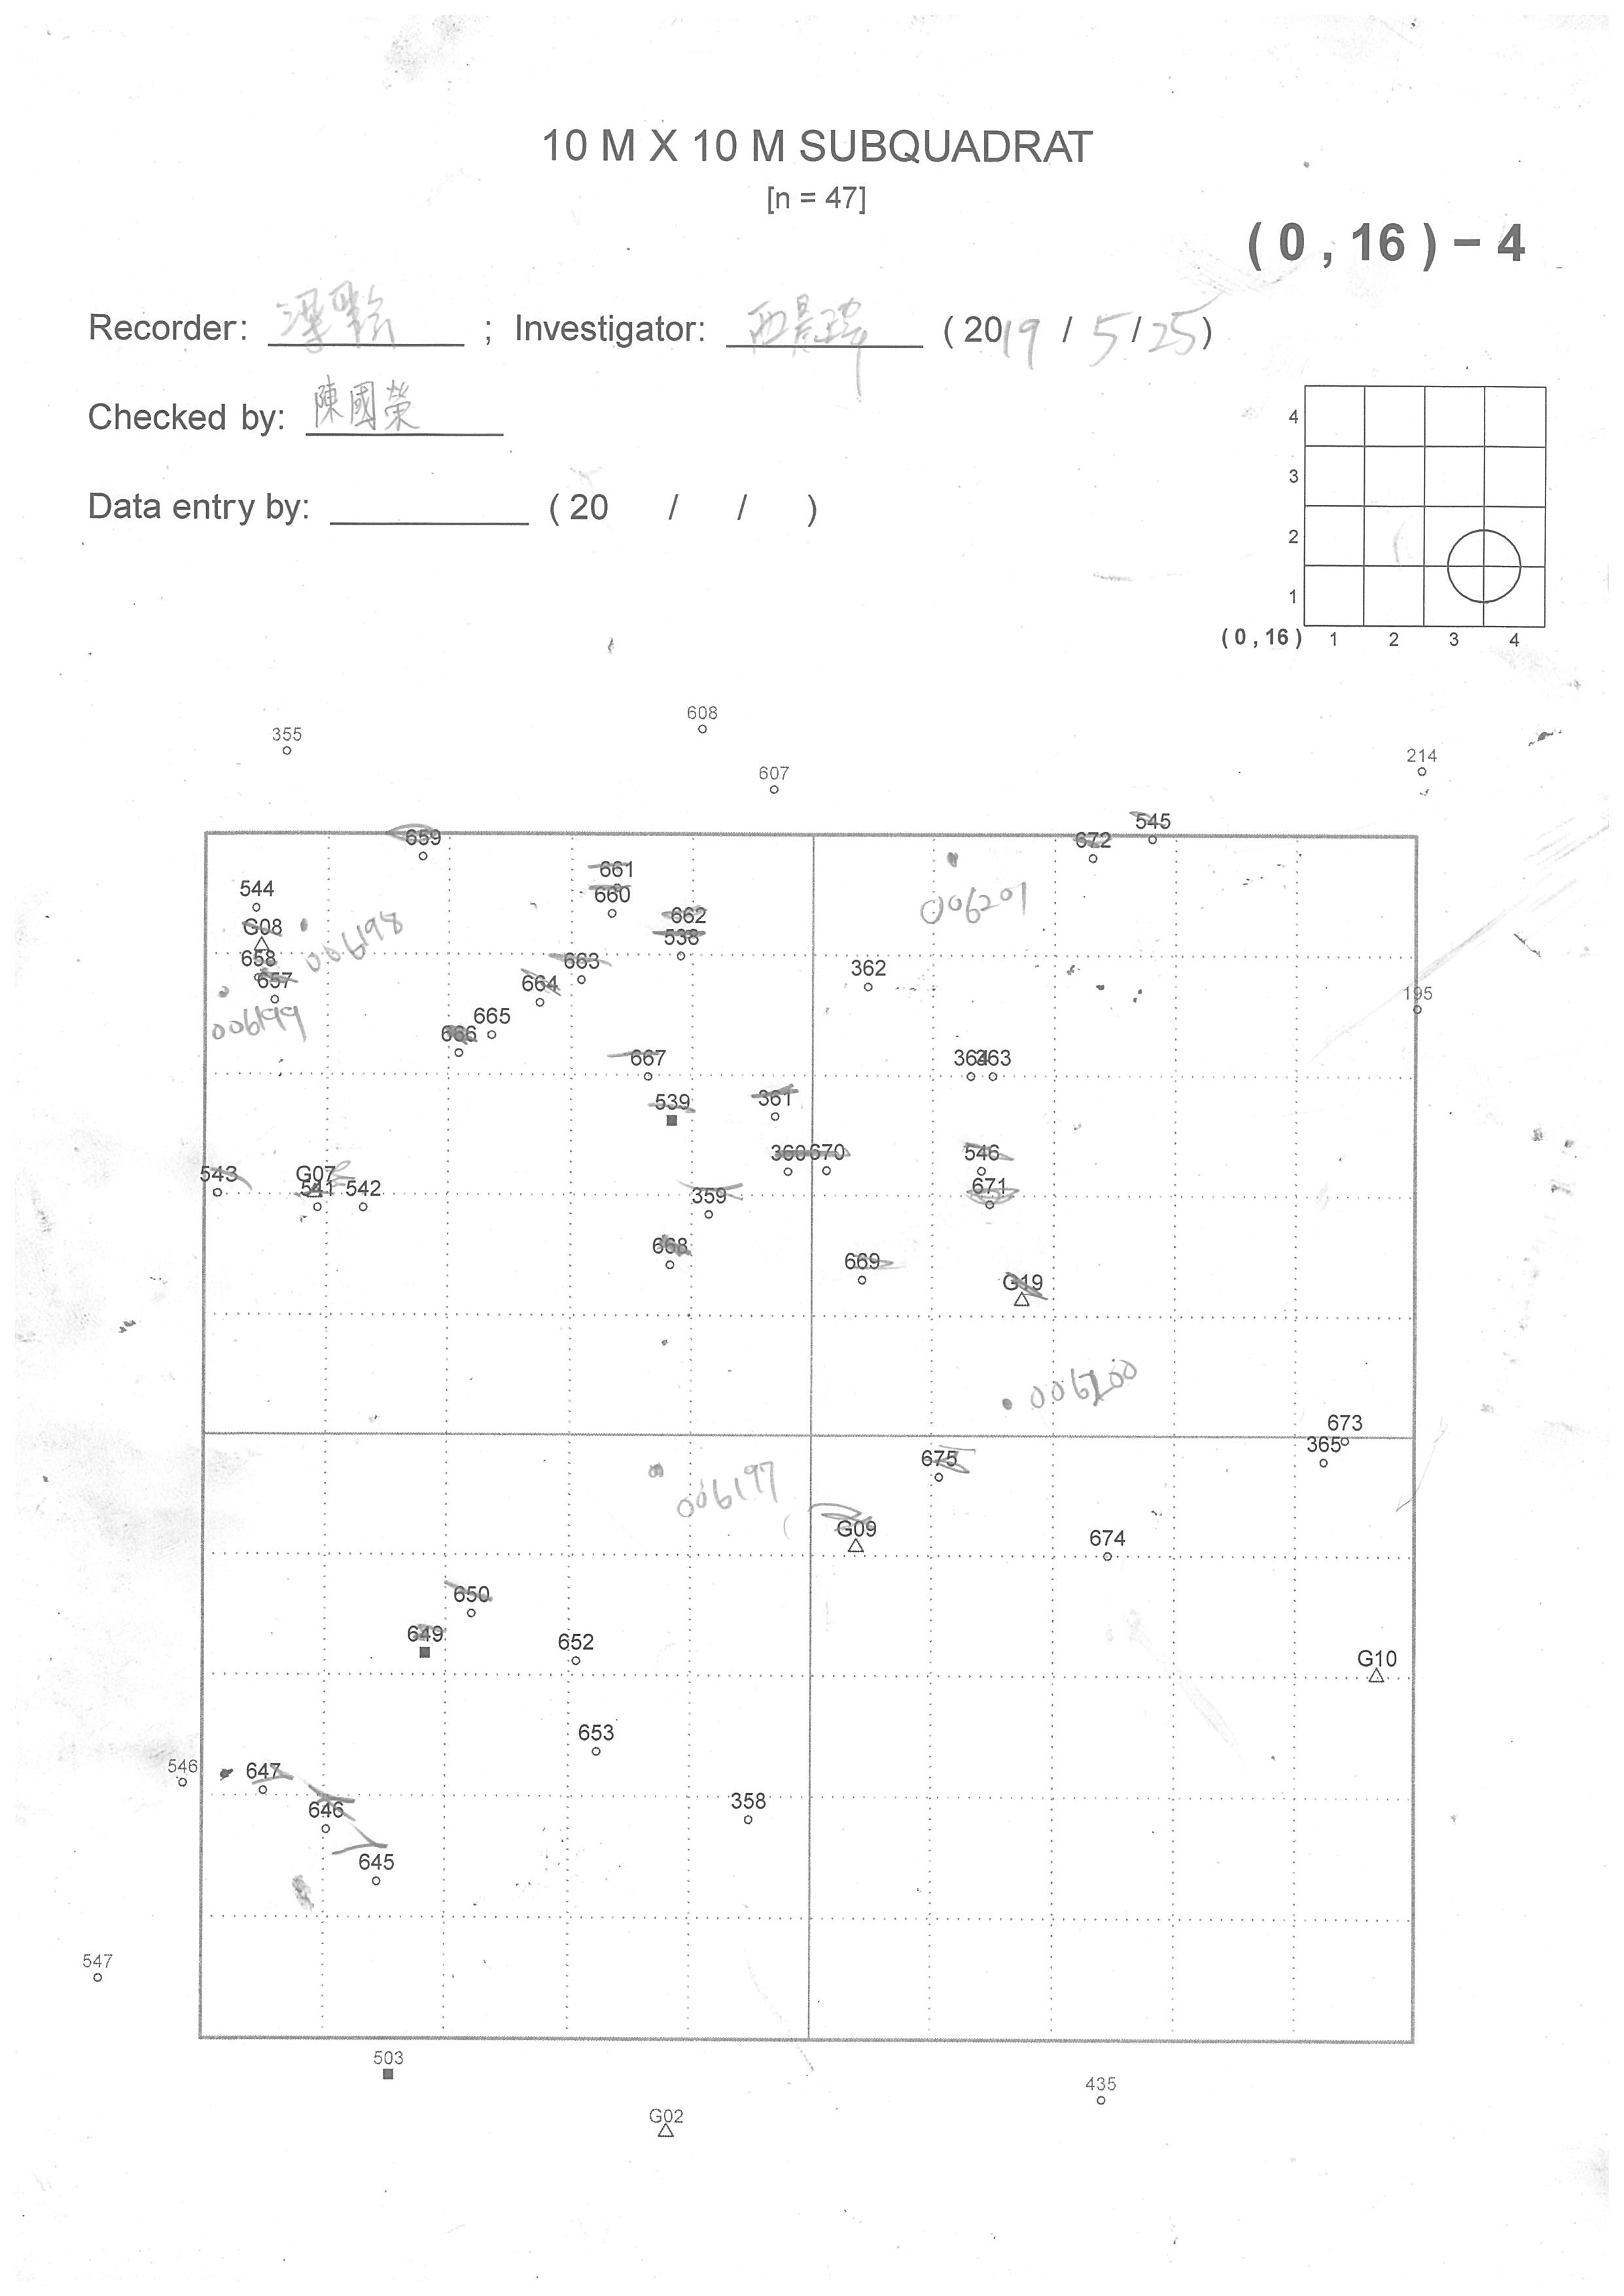 10 M X 10 M SUBQUADRAT
[n = 47]
( 0 , 16 ) – 4
Recorder: ; Investigator: ( 2019 / 5 / 25 )
Checked by: 陳國榮
Data entry by: ( 20 / / )
4
3
2
1
( 0 , 16 ) 1 2 3 4
608
355
214
607
545
659
672
661
544
660
006201
662
G08
006198
538
658
663
362
657
664
195
006199
665
666
667
364 363
539
361
360 670
546
543
G07
541 542
671
359
668
669
G19
006200
673
365
675
006197
G09
674
650
649
652
G10
653
546
647
358
646
645
547
503
435
G02